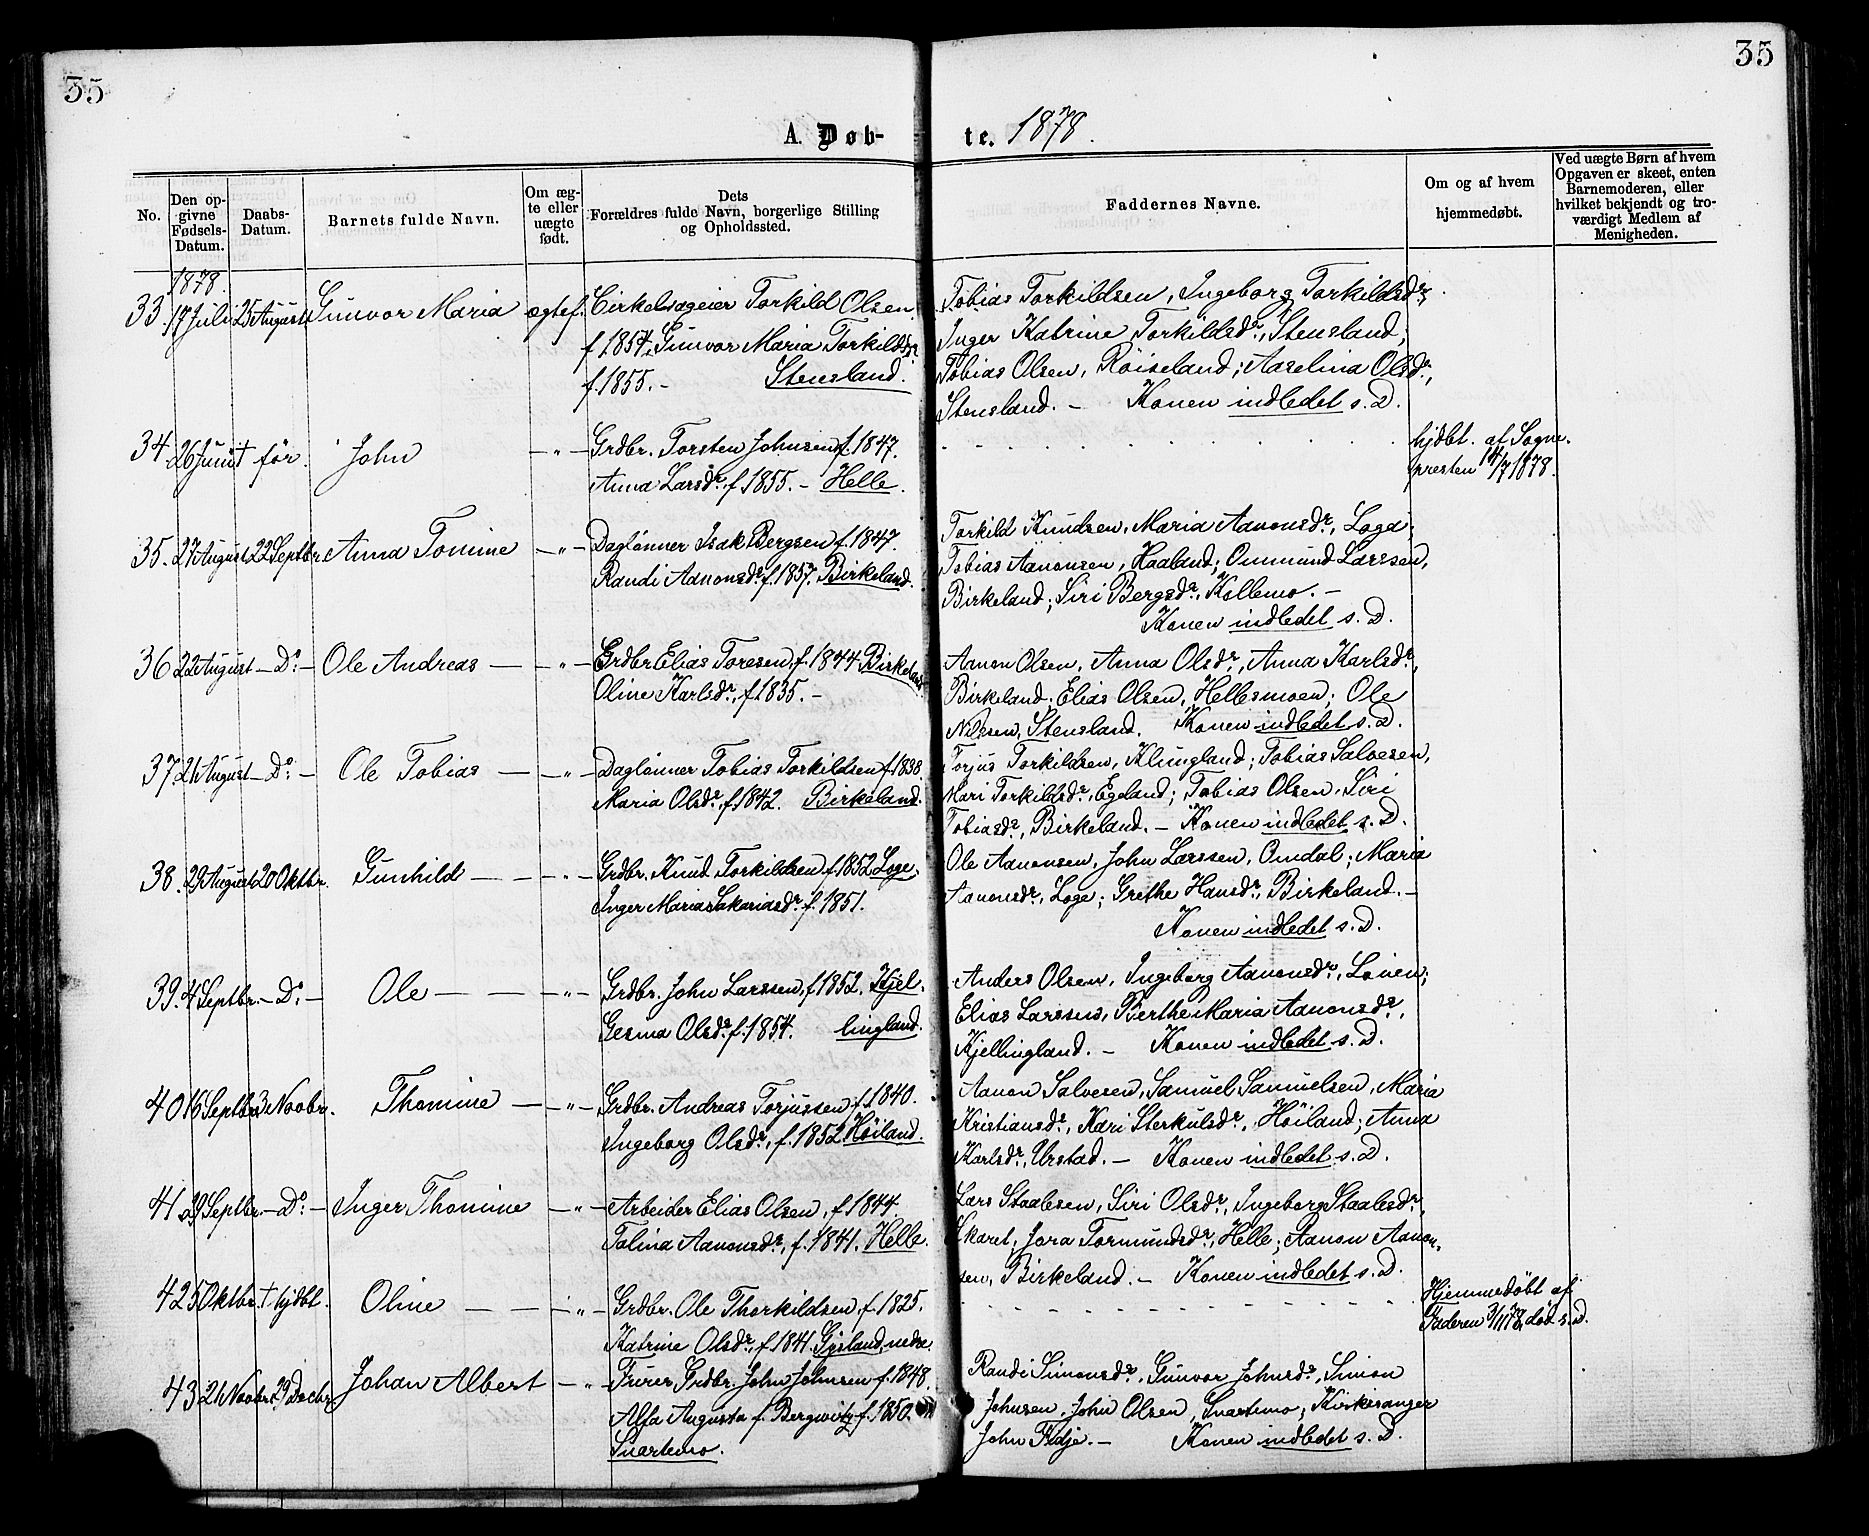 35
35
A. Døb-
te. 1878.
No.
Den op-
givne
Fødsels-
Datum.
Daabs-
Datum.
Barnets fulde Navn.
Om æg-
te eller
uægte
født.
Dets
Forældres fulde Navn, borgerlige Stilling
og Opholdssted.
Faddernes Navne.
Om og af hvem
hjemmedøbt.
Ved uægte Børn af hvem
Opgaven er skeet, enten
Barnemoderen, eller
hvilket bekjendt og tro-
værdigt Medlem af
Menigheden.
1878.
33. 17 Juli 25 August Gunvor Maria ægtef. Cirkelsageier Torkild Olsen
f. 1854, Gunvor Maria Torkildsdr.
f. 1855. - Stensland.
Tobias Torkildsen, Ingeborg Torkildsdr.,
Inger Katrine Torkildsdr., Stensland;
Tobias Olsen, Röiseland; Aaselina Olsdr.,
Stensland. - Konen indledet s. D.
34. 26 Juni † för. John - " - Grdbr. Torsten Johnsen f. 1847.
Anna Larsdr. f. 1855. - Helle.
hjdbt. af Sogne-
presten 14/7 1878.
35. 27 August 22 Septbr. Anna Tomine - " - Daglönner Isak Bergsen f. 1847.
Randi Aanonsdr. f. 1857. Birkeland.
Torkild Knudsen, Maria Aanonsdr., Loge;
Tobias Aanonsen, Haaland; Ommund Larssen,
Birkeland; Siri Bergsdr., Kollemo. -
Konen indledet s. D.
36 22 August - Do. - Ole Andreas - " - Grdbr. Elias Toresen, f. 1844 Birkeland
Oline Karlsdr., f. 1835. -
Aanon Olsen, Anna Olsdr., Anna Karlsdr.,
Birkeland; Elias Olsen, Hellesmoen; Ole
Nilssen, Stensland. Konen indledet s. D.
37. 21 August - Do. - Ole Tobias - " - Daglönner Tobias Torkildsen f. 1838.
Maria Olsdr. f. 1842. Birkeland.
Torjus Torkildsen, Klungland; Tobias Salvesen,
Mari Torkildsdr., Egeland; Tobias Olsen, Siri
Tobiasdr., Birkeland. - Konen indledet s. D.
38. 29 August 20 Oktbr. Gunhild - " - Grdbr. Knud Torkildsen f. 1852 Loge.
Inger Maria Sakariasdr. f. 1851.
Ole Aanonsen, John Larssen, Omdal; Maria
Aanonsdr., Loge; Grethe Hansdr., Birkeland. -
Konen indledet s. D.
39. 4 Septbr. - Do. - Ole - " - Grdbr. John Larssen, f. 1852. Kjel-
Gesma Olsdr. f. 1854. lingland.
Anders Olsen, Ingeborg Aanonsdr., Lönen;
Elias Larssen, Berthe Maria Aanonsdr.,
Kjellingland. - Konen indledet s. D.
40 16 Septbr. 3 Novbr. Thomine - " - Grdbr. Andreas Torjussen f. 1840.
Ingeborg Olsdr., f. 1852 Höiland.
Aanon Salvesen, Samuel Samuelsen, Maria
Kristiansdr., Kari Sterkulsdr., Höiland; Anna
Karlsdr., Urstad. - Konen indledet s. D.
41 29 Septbr. - Do. - Inger Thomine - " - Arbeider Elias Olsen, f. 1844.
Tolina Aanonsdr., f. 1841. Helle.
Lars Staalesen, Siri Olsdr., Ingeborg Staalesdr.,
Skaret, Jora Tormundsdr., Helle; Aanon Aanon-
sen, Birkeland. - Konen indledet s. D.
42 5 Oktbr. † hjdbt. Oline - " - Grdbr. Ole Thorkildsen, f. 1825.
Katrine Olsdr., f. 1841. Gysland, nedre.
Hjemmedöbt af
Faderen 3/11 78, död s. D.
43 21 Novbr. 29 Decbr. Johan Albert - " - Furer Grdbr. John Johnsen f. 1848.
Alfa Augusta f. Bergwitz, f. 1850.
Snartemo.
Randi Simonsdr., Gunvor Johnsdr., Simon
Johnsen, John Olsen, Snartemo; Kirkesanger
John Fidje. - Konen indledet s. D.